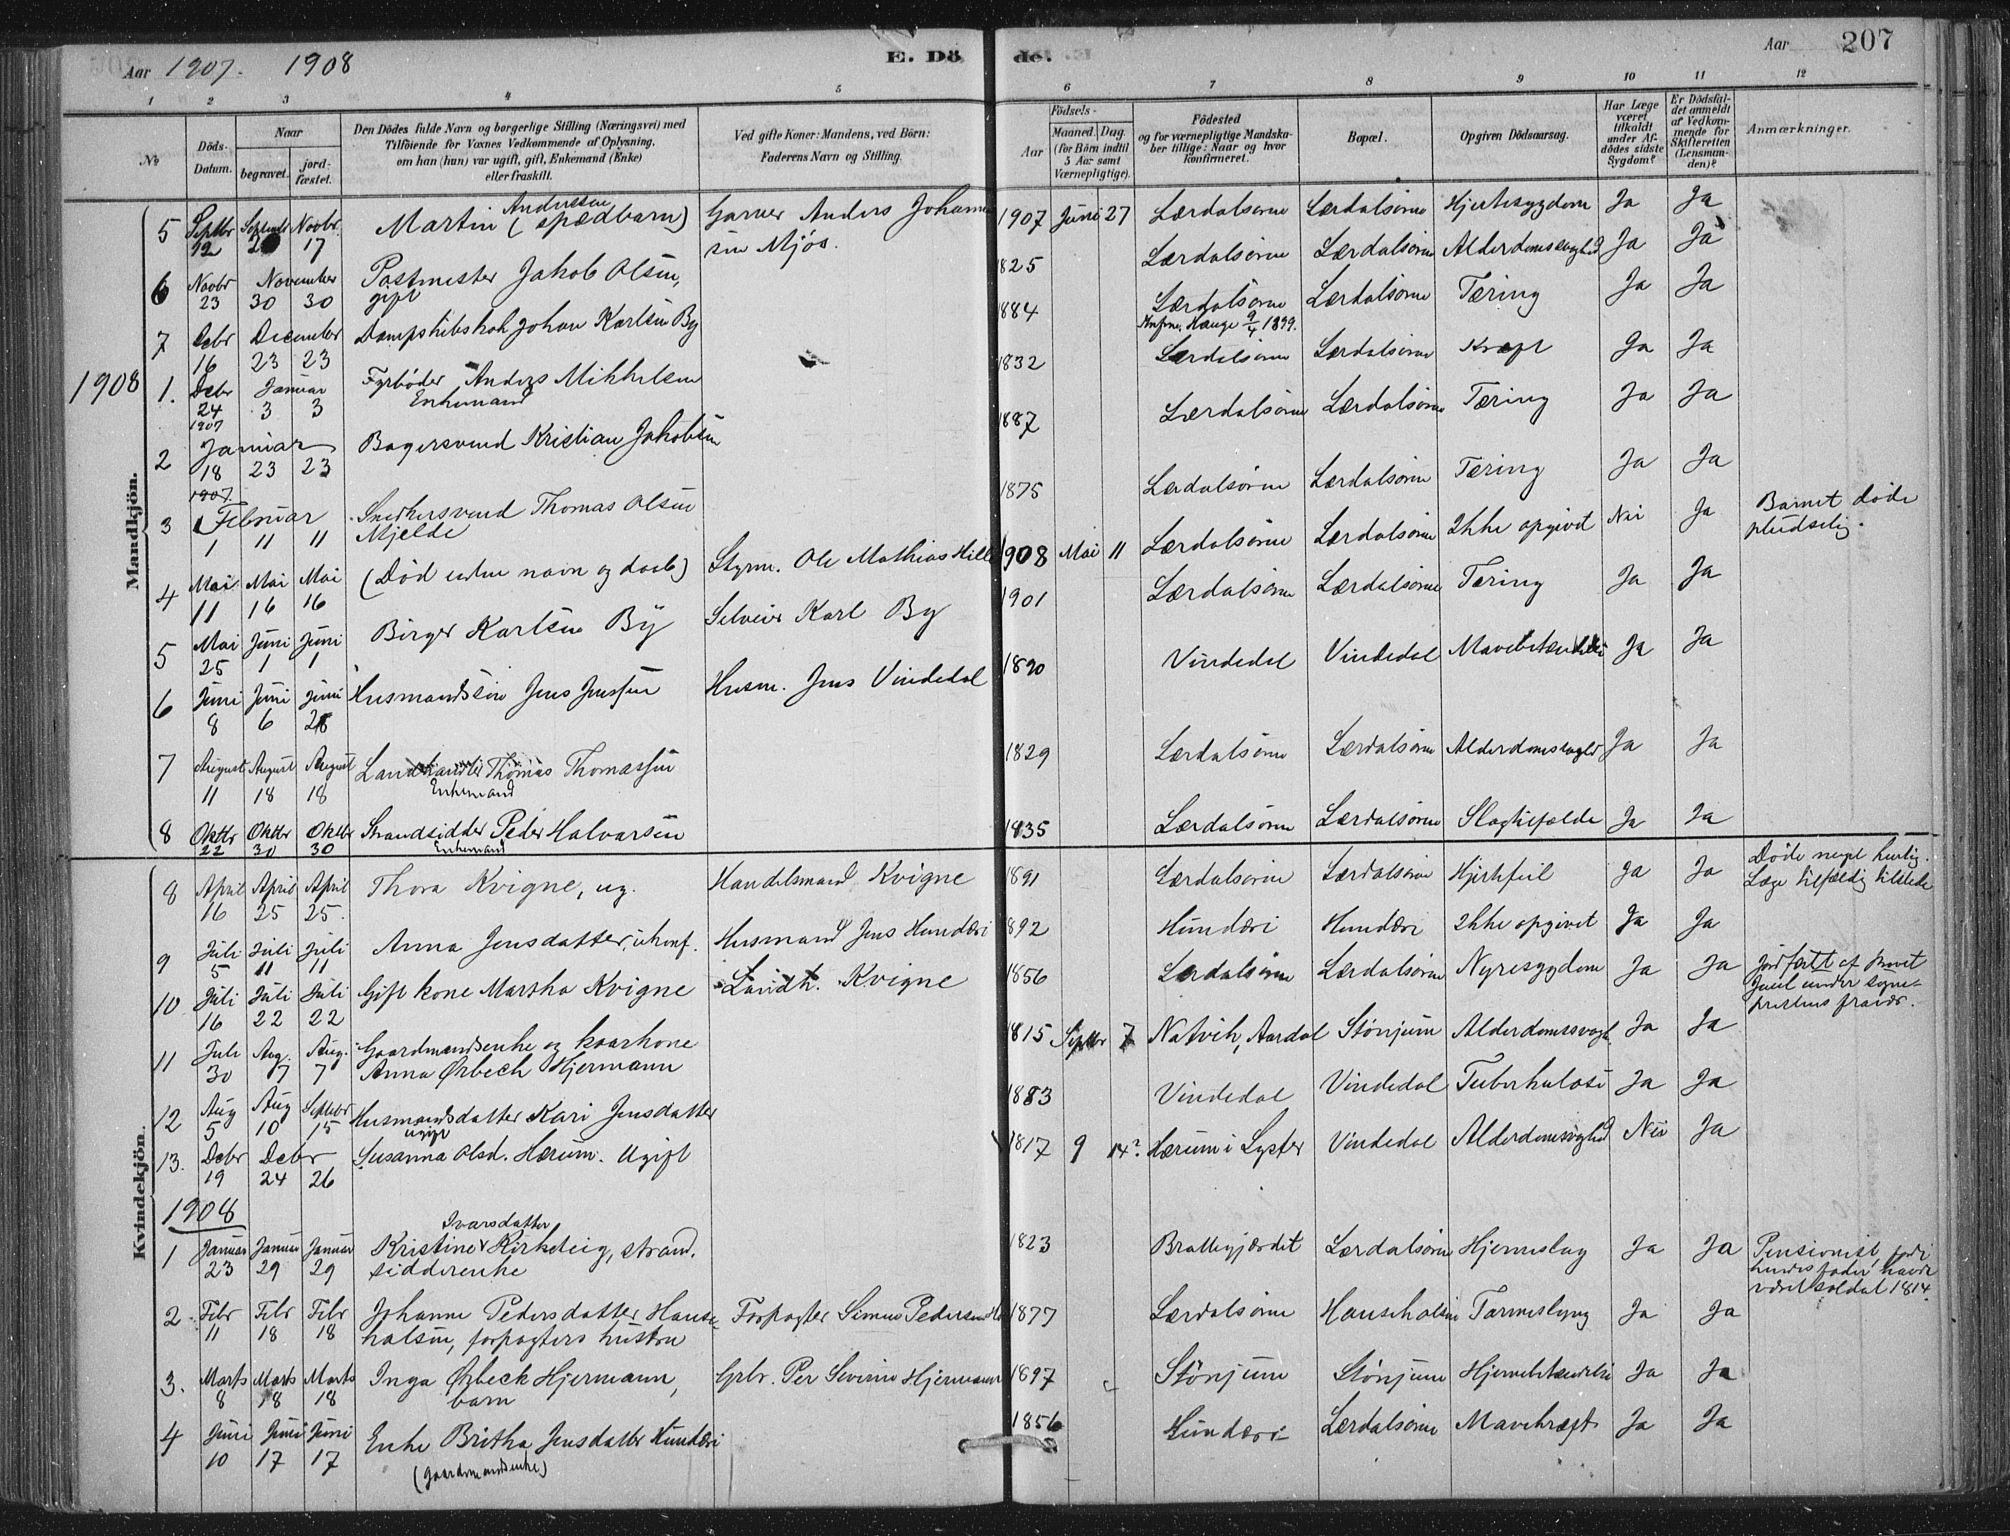 Aar 1907. 1908
E. Dö
de.
Aar 207
1 2 3 4 5 6 7 8 9 10 11 12
No
Döds-
Datum.
Naar
begravet.
jord-
fæstet.
Den Dödes fulde Navn og borgerlige Stilling (Næringsvei) med
Tilföiende for Voxnes Vedkommende af Oplysning,
om han (hun) var ugift, gift, Enkemand (Enke)
eller fraskilt.
Ved gifte Koner: Mandens, ved Börn:
Faderens Navn og Stilling.
Födsels-
Aar
Maaned. Dag.
(for Börn indtil
5 Aar samt
Værnepligtige).
Födested
og for værnepligtige Mandska-
ber tillige: Naar og hvor
konfirmeret.
Bopæl.
Opgiven Dödsaarsag.
Har Læge
været
tilkaldt
under Af-
dödes sidste
Sygdom?
Er Dödsfal-
det anmeldt
af Vedkom-
mende for
Skifteretten
(Lensman-
den)?
Anmærkninger.
Mandkjön.
5 Septbr 12 Septembr Novbr. 17 Martin Anderssen (spædbarn) Garver Anders Johannes
sen Mjøs. 1907 Juni 27 Lærdalsøren Lærdalsøren Hjertesygdom Ja Ja
6 Novbr 23 November 30 30 Postmester Jakob Olsen,
gift 1825 Lærdalsøren Lærdalsøren Alderdomssvaghed Ja Ja
7 Debr 16 December 23 23 Dampskibskok Johan Karlsen By 1884 Lærdalsøren
Konfirm. Hauge 9/4 1899. Lærdalsøren Tæring Ja Ja
1908
1. Debr 24 1907 Januar 3 3 Fyrbøder Anders Mikkelsen
Enkemand 1832 Lærdalsøren Lærdalsøren Kræft Ja Ja
2 Januar 18 23 23 Bagersvend Kristian Jakobsen 1887 Lærdalsøren Lærdalsøren Tæring Ja Ja
1907
3 Februar 1 11 11 Snedkersvend Thomas Olsen
Mjelde 1875 Lærdalsøren Lærdalsøren Tæring Ja Ja
4 Mai 11 Mai 16 Mai 16 (Død uden navn og daab) Styrm. Ole Mathias Hille 1908 Mai 11 Lærdalsøren Lærdalsøren Ikke opgivet Nei Ja Barnet døde
pludselig.
5 Mai 25 Juni 1 Juni 1 Birger Karlsen By Selveier Karl By 1901 Lærdalsøren Lærdalsøren Tæring Ja Ja
6 Juni 8 Juni 6 Juni 28 Husmandssøn Jens Jenssen Husm. Jens Vindedal 1890 Vindedal Vindedal Mavebetændelse Ja Ja
7 August 11 August 18 August 18 Landhandler Thomas Thomassen
Enkemand 1829 Lærdalsøren Lærdalsøren Alderdomssvaghed Ja Ja
8 Oktbr 22 Oktbr 30 Oktbr 30 Strandsidder Peder Halvorsen
Enkemand 1835 Lærdalsøren Lærdalsøren Slagtilfælde Ja Ja
Kvindekjön.
8 April 16 April 25 April 25. Thora Kvigne, ug. Handelsmand Kvigne 1891 Lærdalsøren Lærdalsøren Hjertefeil Ja Ja Døde meget hurtig.
Læge tilfældig tilstede
9 Juli 5 Juli 11 Juli 11 Anna Jensdatter, ukonf. Husmand Jens Hunderi 1892 Hunderi Hunderi Ikke opgivet Ja Ja
10 Juli 16 Juli 22 Juli 22 Gift kone Martha Kvigne Landh. Kvigne 1856 Lærdalsøren Lærdalsøren Nyresygdom Ja Ja Jordfæstet af Provst
Juul under sogne-
prestens fravær.
11 Juli 30 Aug. 7 Aug. 7 Gaardmandsenke og kaarkone
Anna Ørbech Hjermann 1815 Septbr 7 Natvik, Aardal Stønjum Alderdomssvagh. Ja Ja
12 Aug 5 Aug 10 Septbr 15 Husmandsdatter Kari Jensdatter
ugift 1883 Vindedal Vindedal Tuberkulose Ja Ja
13. Debr 19 Debr 24 26 Susanna Olsd. Hærum. Ugift 1817 9 14? Hærum i Lyster Vindedal Alderdomssvaghed Nei Ja
1908
1 Januar 23 Januar 29 Januar 29 Kristine Ivarsdatter Kirketeig, strand-
sidderenke 1823 Brattegjærdet Lærdalsøren Hjerneslag Ja Ja Pensionist, fordi
hendes fader havde
været soldat 1814.
2 Febr 11 Febr 18 Febr 18 Johanne Pedersdatter Hause-
halsen, forpagters hustru Forpagter Simen Pedersen 1877 Lærdalsøren Hausehalsen Tarmslyng Ja Ja
3. Marts 8 Marts 18 Marts 18 Inga Ørbeck Hjermann,
barn Gbr. Per Severin Hjermann 1897 Stønjum Stønjum Hjernebetændelse Ja Ja
4 Juni 10 Juni 17 Juni 17 Enke Britha Jensdatter Hunderi
(gaardmandsenke) 1856 Hunderi Lærdalsøren Mavekræft Ja Ja